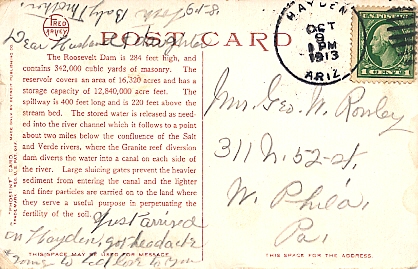 FRED HARVEY
POST CARD
Dear Husband & Daughter
HAYDEN
OCT
9
1 PM
1913
ARIZ.
U.S. POSTAGE
1 CENT 1
The Roosevelt Dam is 284 feet high, and
contains 342,000 cubic yards of masonry. The
reservoir covers an area of 16,320 acres and has a
storage capacity of 12,840,000 acre feet. The
spillway is 400 feet long and is 220 feet above the
stream bed. The stored water is released as need-
ed into the river channel which it follows to a point
about two miles below the confluence of the Salt
and Verde rivers, where the Granite reef diversion
dam diverts the water into a canal on each side of
the river. Large sluicing gates prevent the heavier
sediment from entering the canal and the lighter
and finer particles are carried on to the land where
they serve a useful purpose in perpetuating the
fertility of the soil.
Just arrived
in Hayden, got headache
going to bed love to you
Mrs. Geo. W. Rowley
311 N. 52-st.
W. Phila.
Pa.
"PHOSTINT" CARD
THIS SPACE MAY BE USED FOR MESSAGE.
THIS SPACE FOR THE ADDRESS.